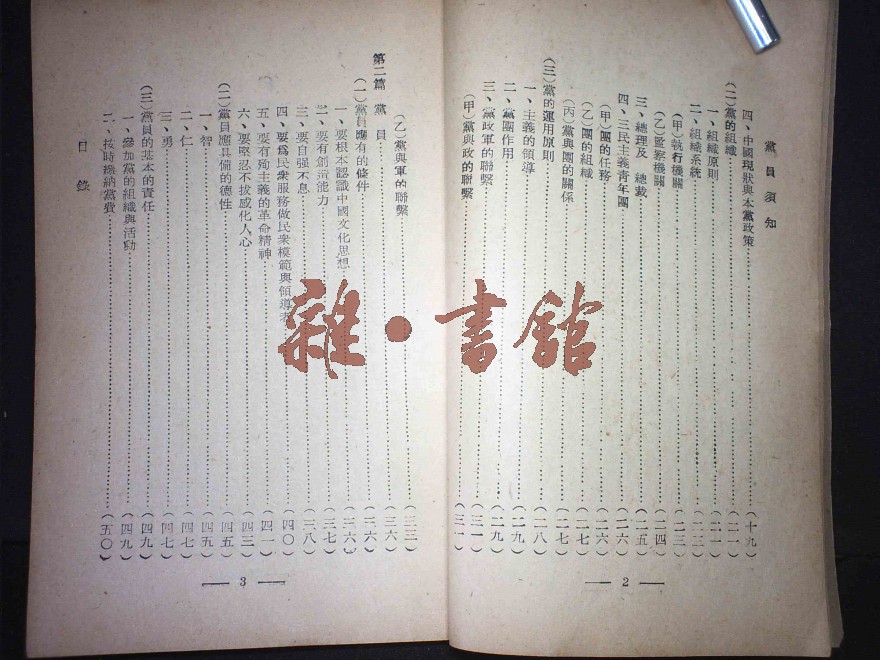 黨員須知
四、中國現狀與本黨政策……(十九)
(二)黨的組織……(二一)
一、組織原則……(二一)
二、組織系統……(二二)
(甲)執行機關……(二三)
(乙)監察機關……(二四)
三、總理及總裁……(二五)
四、三民主義青年團……(二六)
(甲)團的任務……(二六)
(乙)團的組織……(二七)
(丙)黨與團的關係……(二七)
(三)黨的運用原則……(二八)
一、主義的領導……(二八)
二、黨團作用……(二九)
三、黨政軍的聯繫……(三一)
(甲)黨與政的聯繫……(三一)
2
(乙)黨與軍的聯繫……(三三)
第二篇 黨員……(三六)
(一)黨員應有的條件……(三六)
一、要根本認識中國文化思想……(三六)
二、要有創造能力……(三七)
三、要自强不息……(三八)
四、要爲民衆服務做民衆模範與領導者……(四〇)
五、要有殉主義的革命精神……(四一)
六、要堅忍不拔感化人心……(四三)
(二)黨員應具備的德性……(四五)
一、智……(四五)
二、仁……(四七)
三、勇……(四七)
(三)黨員的基本的責任……(四九)
一、參加黨的組織與活動……(四九)
二、按時繳納黨費……(五〇)
目錄
3
雜·書館